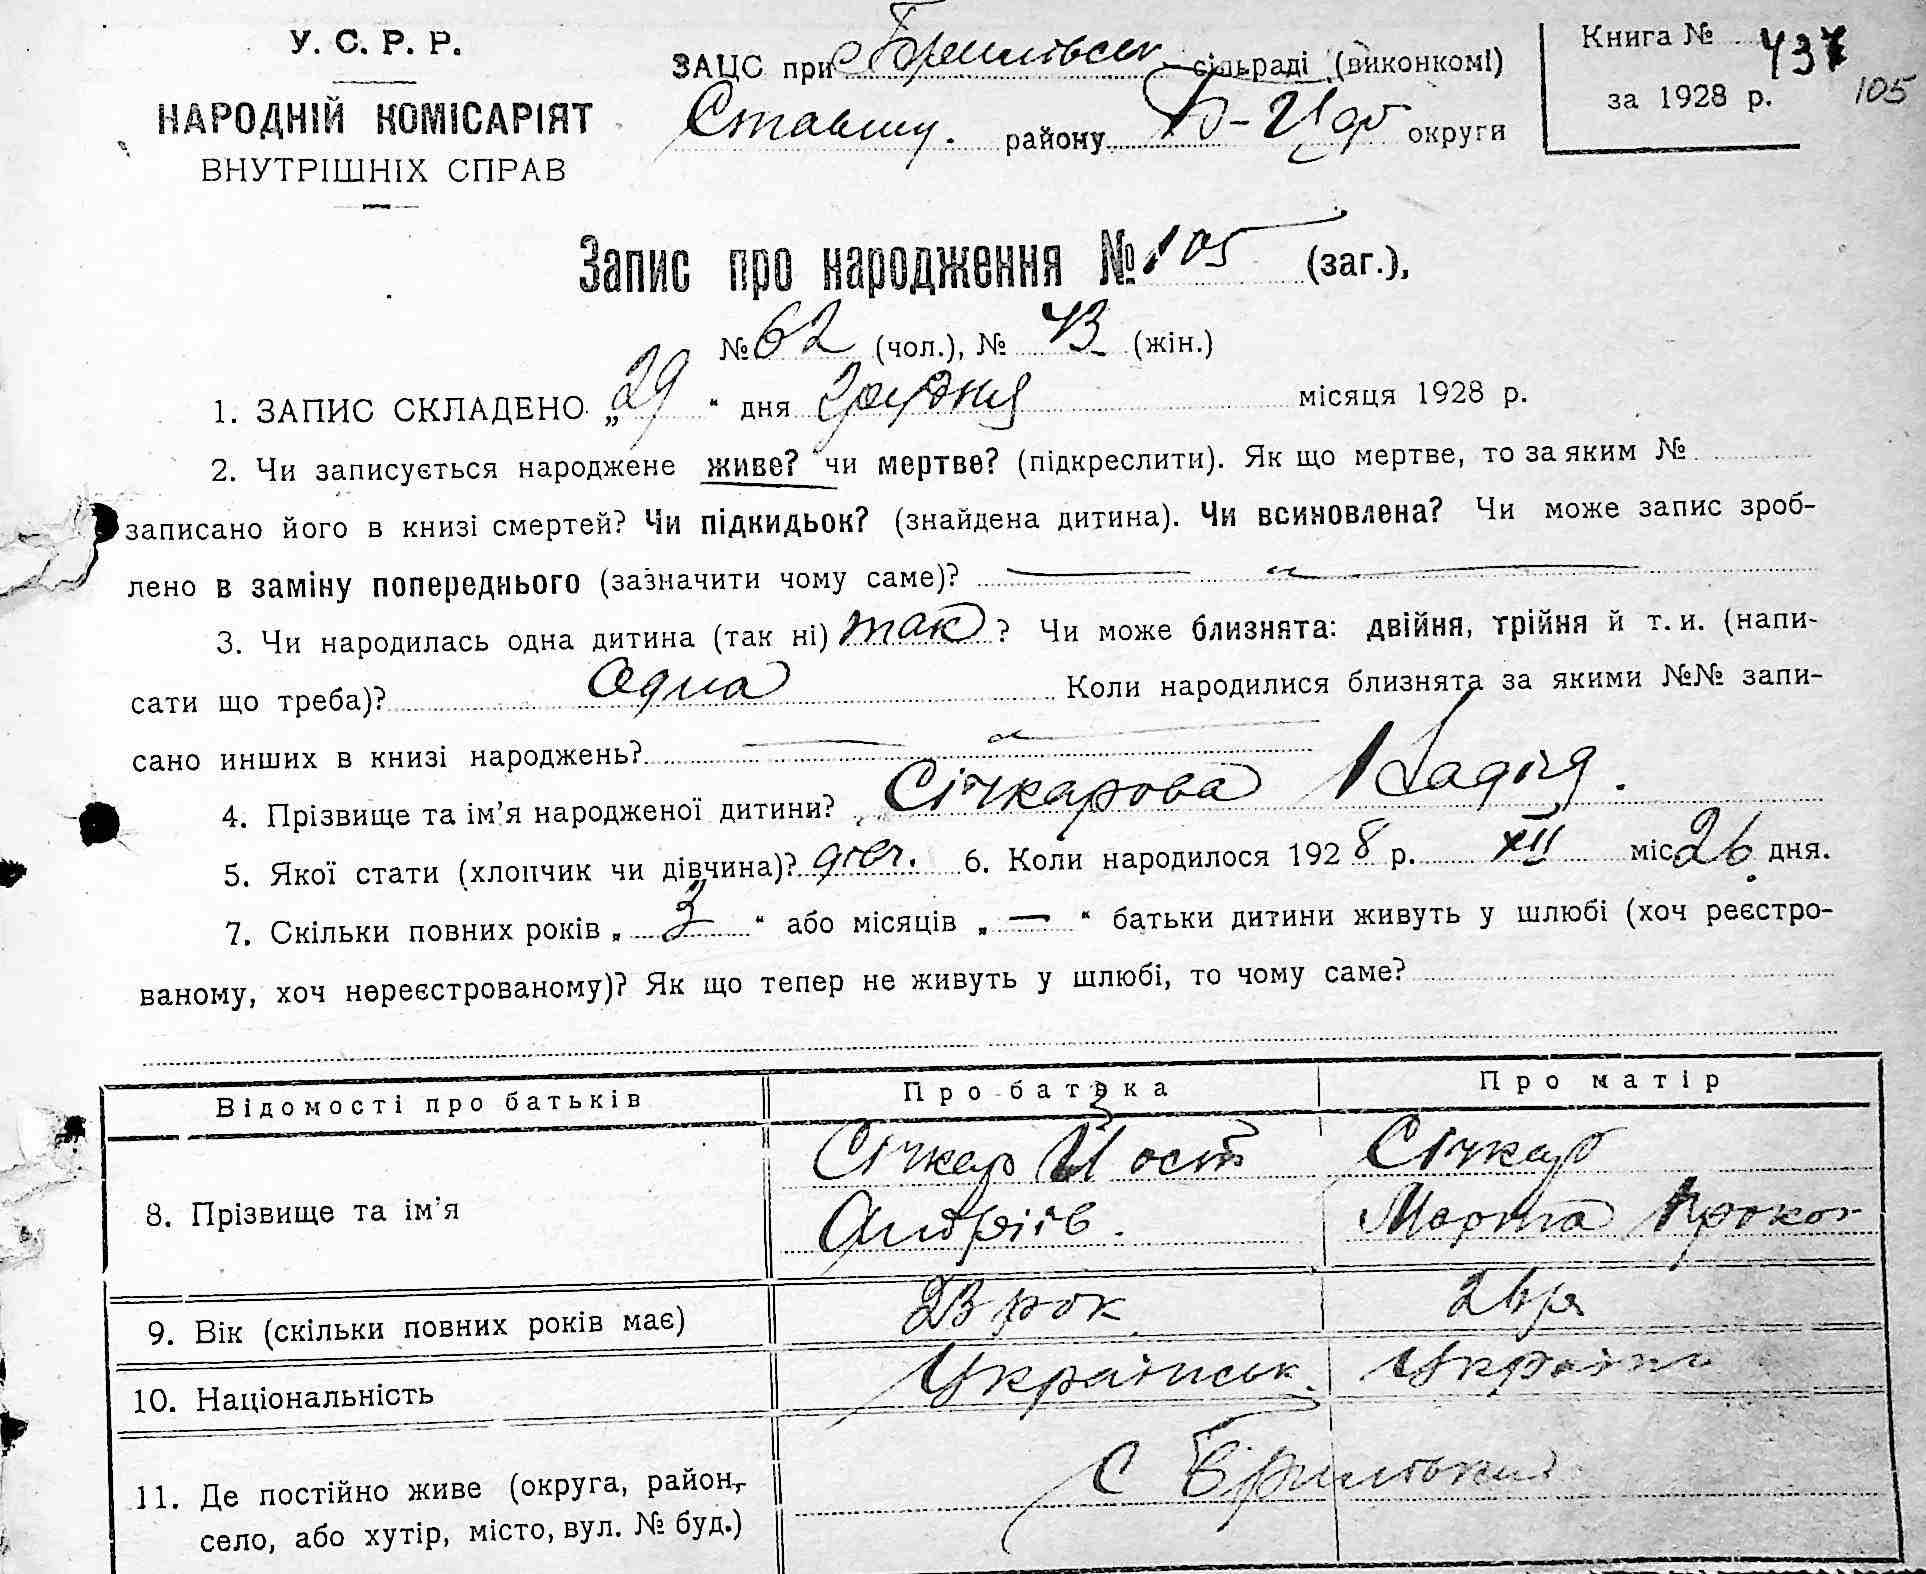 У. С. Р. Р.
НАРОДНІЙ КОМІСАРІЯТ
ВНУТРІШНІХ СПРАВ
ЗАЦС при сільраді (виконкомі)
Ставищ. району Б-Церк округи
Книга № 437
за 1928 р. 105
Запис про народження № 105 (заг.),
№ 62 (чол.), № 43 (жін.)
1. ЗАПИС СКЛАДЕНО „29“ дня грудня місяця 1928 р.
2. Чи записується народжене живе? чи мертве? (підкреслити). Як що мертве, то за яким №
записано його в книзі смертей? Чи підкидьок? (знайдена дитина). Чи всиновлена? Чи може запис зроб-
лено в заміну попереднього (зазначити чому саме)? — „ —
3. Чи народилась одна дитина (так ні) так? Чи може близнята: двійня, трійня й т. и. (напи-
сати що треба)? Одна Коли народилися близнята за якими №№ запи-
сано инших в книзі народжень? — „ —
4. Прізвище та ім'я народженої дитини? Січкарова Надія.
5. Якої стати (хлопчик чи дівчина)? дівч. 6. Коли народилося 1928 р. XII міс 26 дня.
7. Скільки повних років „ 3 “ або місяців „ — “ батьки дитини живуть у шлюбі (хоч реєстро-
ваному, хоч нереєстрованому)? Як що тепер не живуть у шлюбі, то чому саме?
Відомості про батьків Про батька Про матір
8. Прізвище та ім'я Січкар Йост Січкар
Андріїв. Марта Прокоп
9. Вік (скільки повних років має) 23 рок 26 р
10. Національність Українськ. Україн
11. Де постійно живе (округа, район,
село, або хутір, місто, вул. № буд.) с